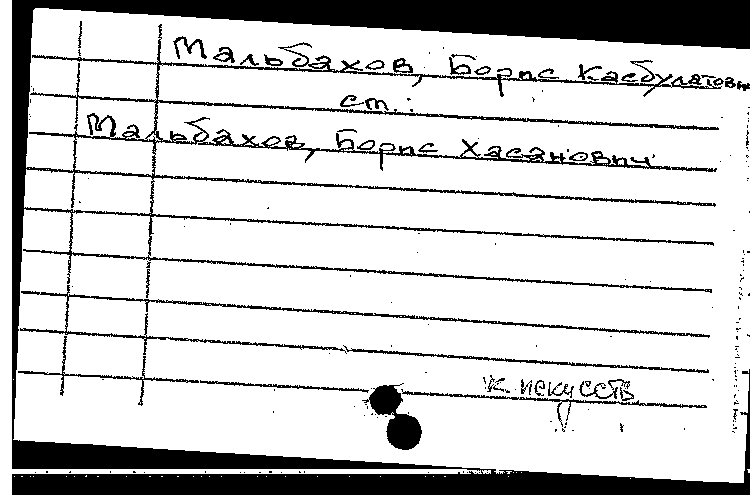 Мальбахов, Борис Касбулатович
ст.:
Мальбахов, Борис Хасанович
к. искусств.